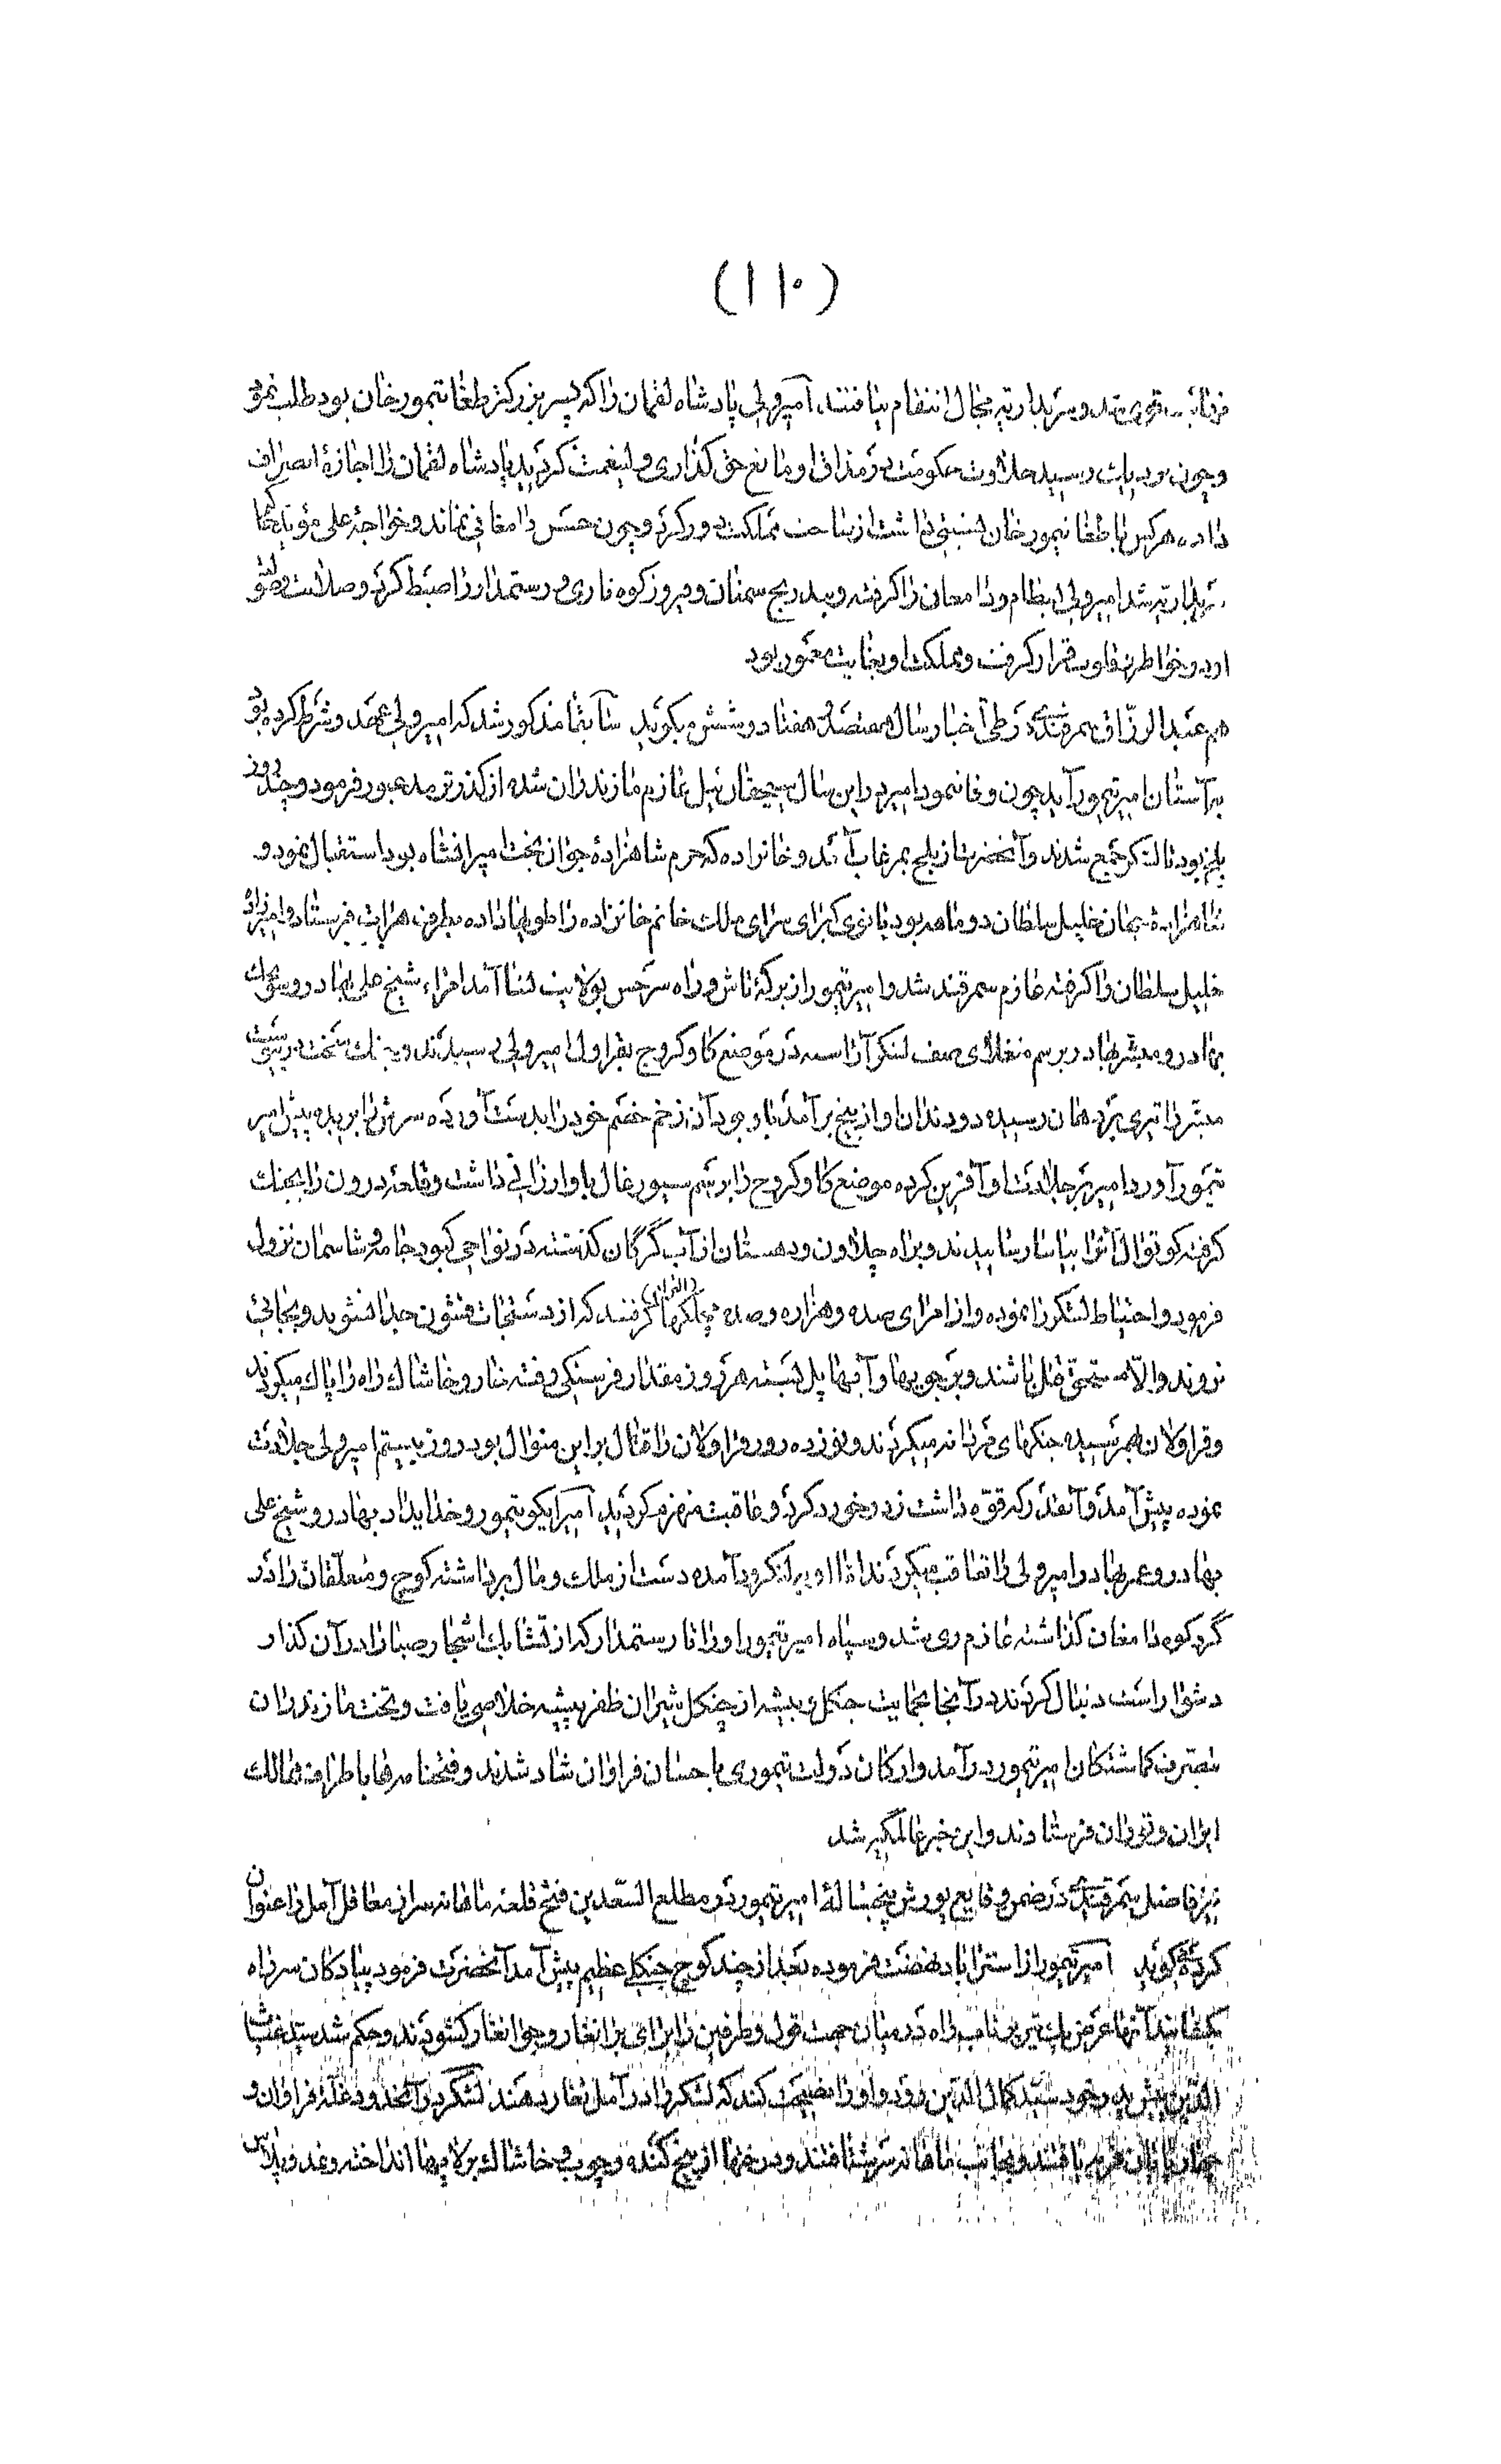 (۱۱۰)
قوی شد و سربداریه مجال انتقام نیافتند، امیر ولی پادشاه لقمان را که پسر بزرگتر طغا تیمور خان بود طلب نمود
و چون رسید حلاوت حکومت در مذاق او مانع حق گذاری ولینعمت گردید پادشاه لقمان را اجازهٔ انصراف
داد، هر کس با طغا تیمور خان نسبتی داشت از ساحت مملکت دور کرد و چون حسن دامغانی نماند و خواجه علی مؤید
سربداریه شد امیر ولی بسطام و دامغان را گرفته و بتدریج سمنان و فیروزکوه و ری و رستمدار را ضبط کرد و صلابت
او در خواطر قرار گرفت و مملکت او بغایت معمور بود
هم عبد الرزاق سمرقندی در طی اخبار سال هفتصد و هفتاد و شش میگوید سابقا مذکور شد که امیر ولی عهد و شرط کرده بود
بر آستان امیر تیمور آید چون وفا ننمود امیر در این سال سیچقان ئیل عازم مازندران شده از گذر ترمد عبور فرمود و چند روز
بلخ بود تا لشکر جمع شدند و آنحضرت از بلخ بمرغاب آمد و خانزاده که حرم شاهزادهٔ جوان بخت امیرانشاه بود استقبال نمود و
شاهزادهٔ جهان خلیل سلطان دو ماهه بود بانوی کبرای سرای ملک خانم خانزاده را طویها داده بطرف هرات فرستاد و امیرزاده
خلیل سلطان را گرفته عازم سمرقند شد و امیر تیمور از برکهٔ تاش و راه سرخس بولایت نسا آمد امراء شیخ علی بهادر و سونجک
بهادر و مبشر بهادر برسم منغلای صف لشکر آراسته در موضع گاوکروج بقراول امیر ولی رسیدند و جنگ سخت در پیوست
مبشر را تیری بر دهان رسیده دو دندان او از بیخ برآمد با وجود آن زخم خصم خود را بدست آورده سرش را بریده پیش امیر
تیمور آورد امیر بر جلادت او آفرین کرده موضع گاوکروج را برسم سیورغال باو ارزانی داشت و قلعهٔ درون را بجنگ
گرفته کوتوال آنرا بیاسا رسانیدند و براه چلاون و دهستان از آب گرگان گذشته در نواحی کبود جامه و شاسمان نزول
فرمود و احتیاط لشکر را نموده و از امرای صده و هزاره و صده مچلکها گرفتند که از دستجات قشون جدا نشوند و بجائی
نروند والا مستحق قتل باشند و بر جویها و آبها پل بسته هر روز مقدار فرسنگی رفته خار و خاشاک راه را پاک میکردند
و قراولان بهم رسیده جنگهای مردانه میکردند و نوزده روز قراولان را قتال بر این منوال بود روز بیستم امیر ولی جلادت
نموده پیش آمد و آنقدر که قوّه داشت زد و خورد کرد و عاقبت منهزم گردید امیر ایکو تیمور و خدایداد بهادر و شیخ علی
بهادر و عمر بهادر امیر ولی را تعاقب میکردند اما او بر لنگرود آمده دست از ملک و مال برداشته کوچ و متعلقان را در
گردکوه دامغان گذاشته عازم ری شد و سپاه امیر تیمور او را تا رستمدار که از تشابک اشجار صبا را در آن گذار
دشوار است دنبال کردند در آنجا بحمایت جنگل و بیشه از چنگل شیران ظفر پیشه خلاصی یافت و تخت مازندران
بتصرف گماشتگان امیر تیمور درآمد و ارکان دولت تیموری باحسان فراوان شاد شدند و فتحنامه‌ها باطراف ممالک
ایران و توران فرستادند و این خبر عالمگیر شد
نیز فاضل سمرقندی در ضمن وقایع یورش پنجسالهٔ امیر تیمور در مطلع السعدین فتح قلعهٔ ماهانه سر از معاقل آمل را عنوان
کرده گوید امیر تیمور از استراباد نهضت فرموده بعد از چند کوچ جنگلی عظیم پیش آمد آنحضرت فرمود پیادگان سر راه
بگشایند آنها عرض یک تیر پرتاب راه در میان جهت قول و طرفین را برای برانغار و جوانغار گشودند و حکم شد سید غیاث
الدین پیش پدر خود سید کمال الدین رود و او را نصیحت کند که لشکر را در آمل تغار دهند لشکر در آنحدود غلهٔ فراوان و
چهارپایان فربه یافتند و بجانب ماهانه سر شتافتند و درختها از بیخ کنده و چوب و خاشاک بر لایها انداخته و نمد و پلاس